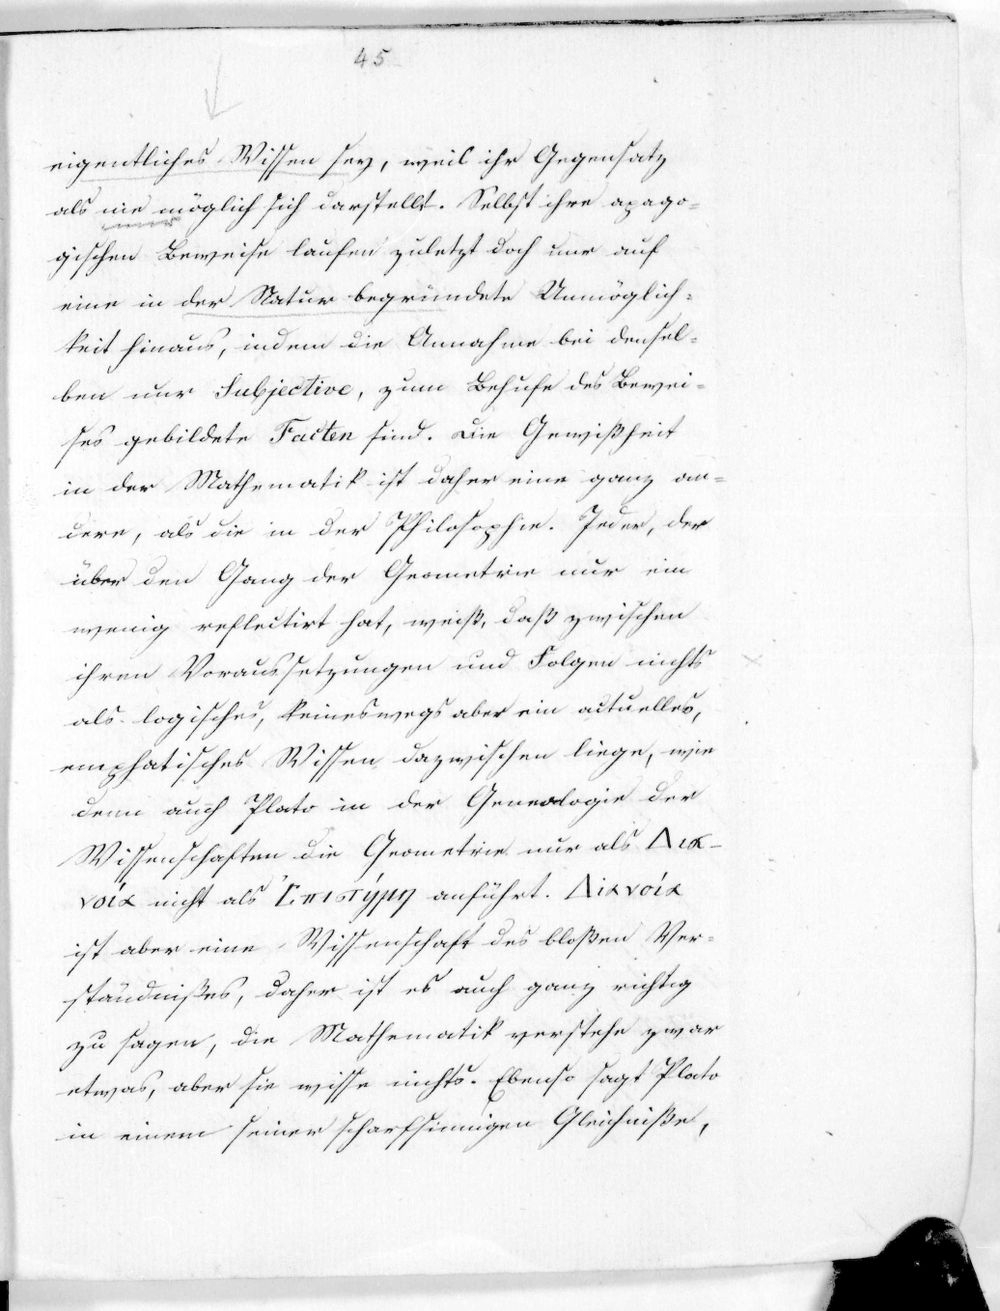 45
eigentliches Wissen sey, weil ihr Gegensatz
als nie möglich sich darstellt. Selbst ihre apago-
gischen Beweise laufen zuletzt doch nur auf
eine in der Natur begründete Unmöglich-
keit hinaus, indem die Annahme bei densel-
ben nur Subjective, zum Behufe des Bewei-
ses gebildete Facten sind. Die Gewißheit
in der Mathematik ist daher eine ganz an-
dere, als die in der Philosophie. Jeder, der
über den Gang der Geometrie nur ein
wenig reflectirt hat, weiß, daß zwischen
ihren Voraussetzungen und Folgen nichts
als logisches, keineswegs aber ein actuelles,
emphatisches Wissen dazwischen liege, wie
denn auch Plato in der Genealogie der
Wissenschaften die Geometrie nur als Δια-
νοία nicht als Ἐπιστήμη anführt. Διανοία
ist aber eine Wissenschaft des bloßen Ver-
ständnißes, daher ist es auch ganz richtig
zu sagen, die Mathematik verstehe zwar
etwas, aber sie wisse nichts. Ebenso sagt Plato
in einem seiner scharfsinnigen Gleichniße,